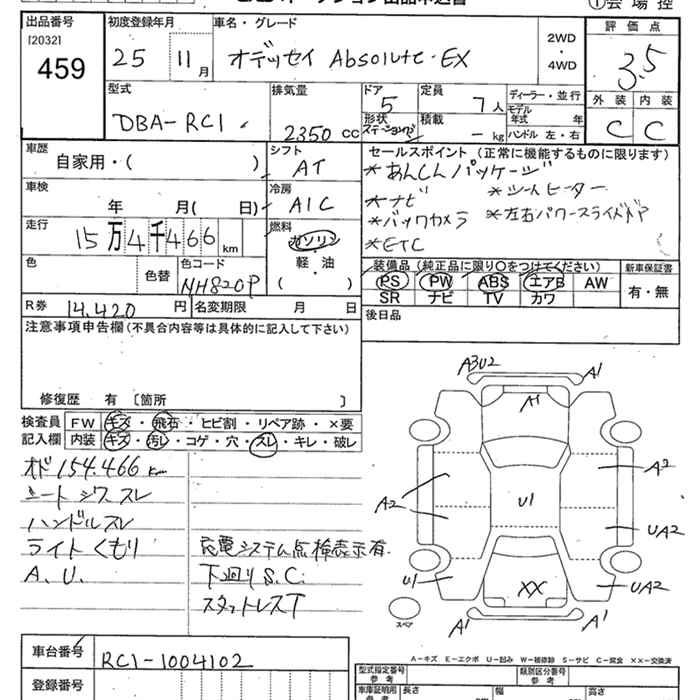 ①会場控
出品番号
[2032]
459
初度登録年月
25 11月
車名・グレード
オデッセイ Absolute・EX
2WD
・
4WD
評価点
3.5
外装 内装
C C
型式
DBA-RC1
排気量
2350 cc
ドア
5
定員
7人
形状
ステーションワゴン
積載
- kg
ディーラー・並行
モデル年式 年
ハンドル 左・右
車歴
自家用・( )
車検
年 月( 日)
走行
15万4千466 km
シフト
AT
冷房
AIC
燃料
ガソリン
軽・油
( )
色
色替
色コード
NH820P
R券 14,420 円
名変期限 月 日
セールスポイント (正常に機能するものに限ります)
*あんしんパッケージ
*ナビ *シートヒーター
*バックカメラ *左右パワースライドドア
*ETC
装備品 (純正品に限り○をつけてください)
PS PW ABS エアB AW
SR ナビ TV カワ
新車保証書
有・無
後日品
注意事項申告欄(不具合内容等は具体的に記入して下さい)
修復歴 有 [箇所 ]
検査員記入欄
FW キズ・飛石・ヒビ割・リペア跡・×要
内装 キズ・汚レ・コゲ・穴・スレ・キレ・破レ
オド154,466km
シートシワスレ
ハンドルスレ
ライトくもり
A.U.
充電システム点検表示有
下廻りS.C.
スタットレスT
A3U2
A1
A1
A2
A2
U1
UA2
U1
XX
UA2
A1
A1
スペア
A-キズ E-エクボ U-凹み W-補修跡 S-サビ C-腐食 XX-交換済
車台番号 RC1-1004102
登録番号
型式指定番号
参考
類別区分番号
参考
車庫証明用
参考
長さ
幅
高さ